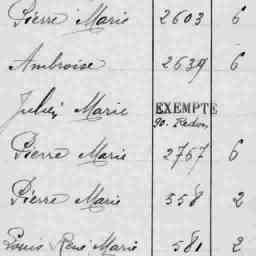 Pierre Marie 2603 6
Ambroise 2639 6
Julien Marie EXEMPTE
90. Redon,
Pierre Marie 2757 6
Pierre Marie 558 2
Louis René Marie 581 2